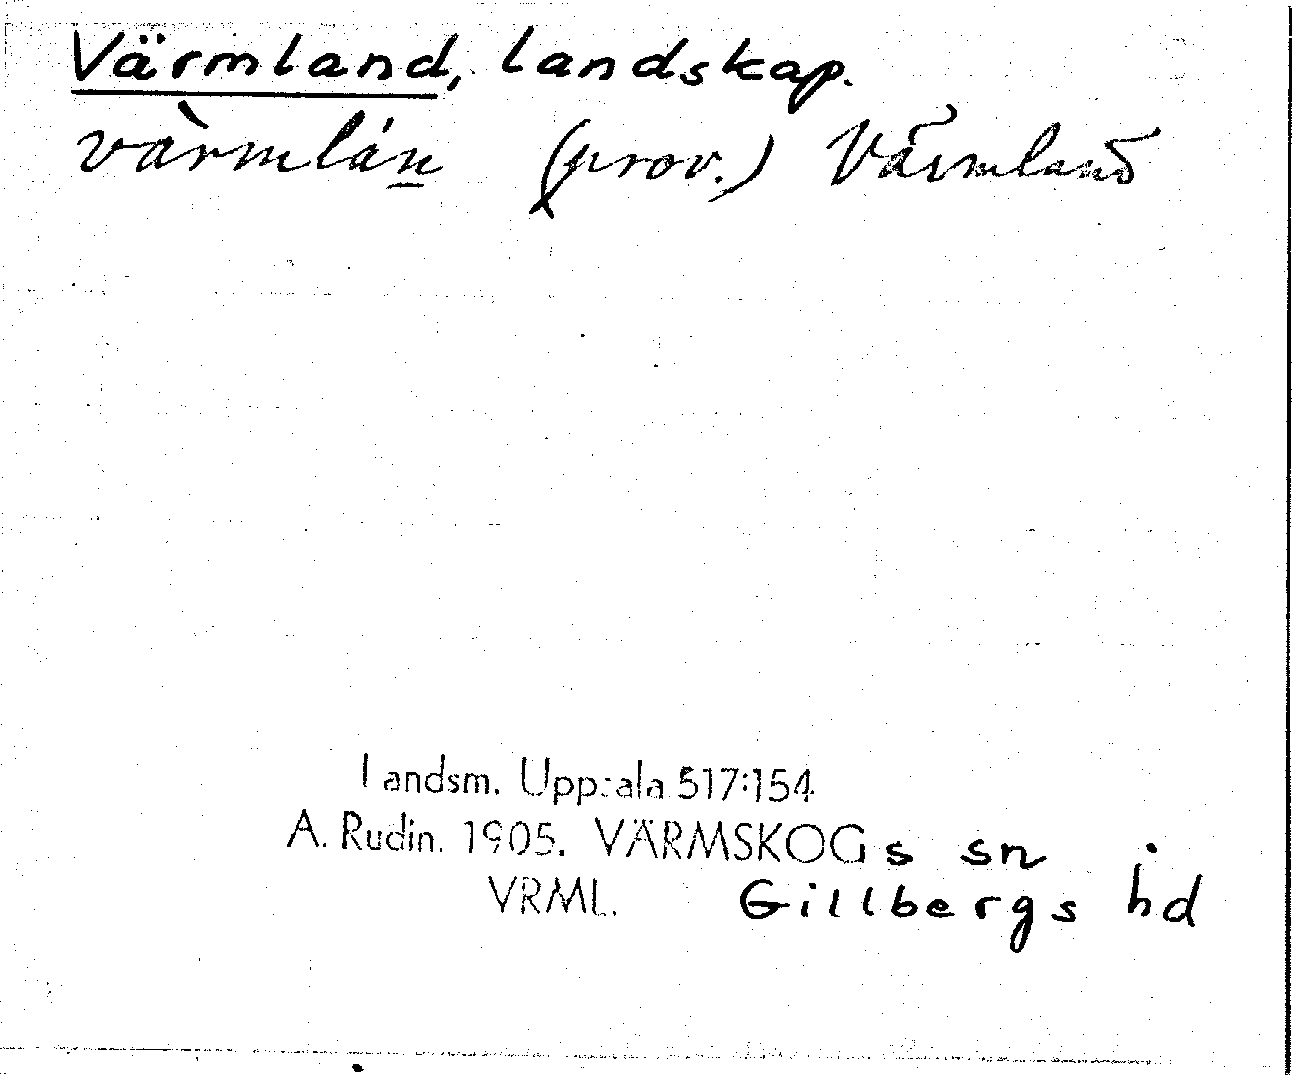 Värmland, landskap.
vàrmlán̲ (prov.) Värmland
Landsm. Uppsala 517:154
A. Rudin. 1905. VÄRMSKOGs sn i
VRML. Gillbergs hd